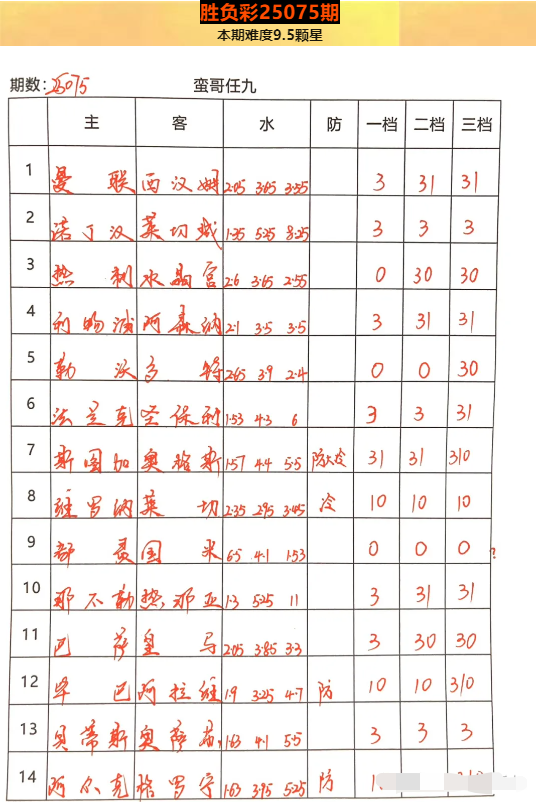 胜负彩25075期
本期难度9.5颗星
期数: 25075 蛮哥任九
主 客 水 防 一档 二档 三档
1 曼联 西汉姆 2.05 3.65 3.55 3 31 31
2 诺丁汉 莱切城 1.35 5.25 8.25 3 3 3
3 热刺 水晶宫 2.6 3.65 2.55 0 30 30
4 利物浦 阿森纳 2.1 3.5 3.5 3 31 31
5 勒沃 多特 2.65 3.9 2.4 0 0 30
6 法兰克 圣保利 1.53 4.3 6 3 3 31
7 斯图加 奥格斯 1.57 4.4 5.5 防大冷 31 31 310
8 维罗纳 莱切 2.35 2.95 3.45 冷 10 10 10
9 都灵 国米 6.5 4.1 1.53 0 0 0 ?
10 那不勒 热那亚 1.3 5.25 11 3 31 31
11 巴萨 皇马 2.05 3.85 3.3 3 30 30
12 毕巴 阿拉维 1.9 3.25 4.7 防 10 10 310
13 贝蒂斯 奥萨苏 1.63 4.1 5.5 3 3 3
14 阿尔克 格罗宁 1.63 3.95 5.25 防